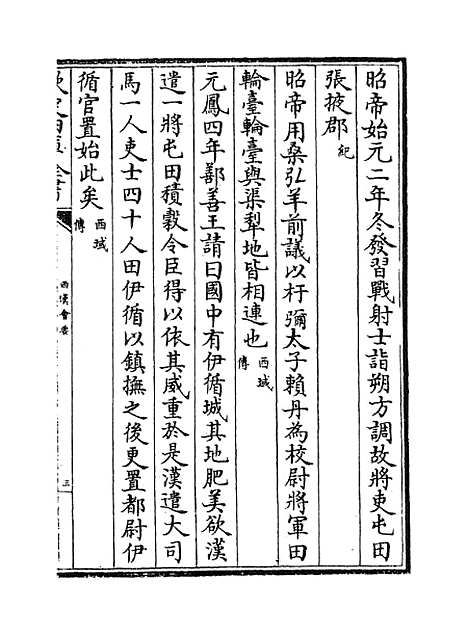 昭帝始元二年冬發習戰射士詣朔方調故將吏屯田
張掖郡紀
昭帝用桑弘羊前議以杅彌太子賴丹為校尉將軍田
輪臺輪臺與渠犁地皆相連也西域傳
元鳳四年鄯善王請曰國中有伊循城其地肥美欲漢
遣一將屯田積榖令臣得以依其威重於是漢遣大司
馬一人吏士四十人田伊循以鎮撫之後更置都尉伊
循官置始此矣西域傳
西漢會要
三